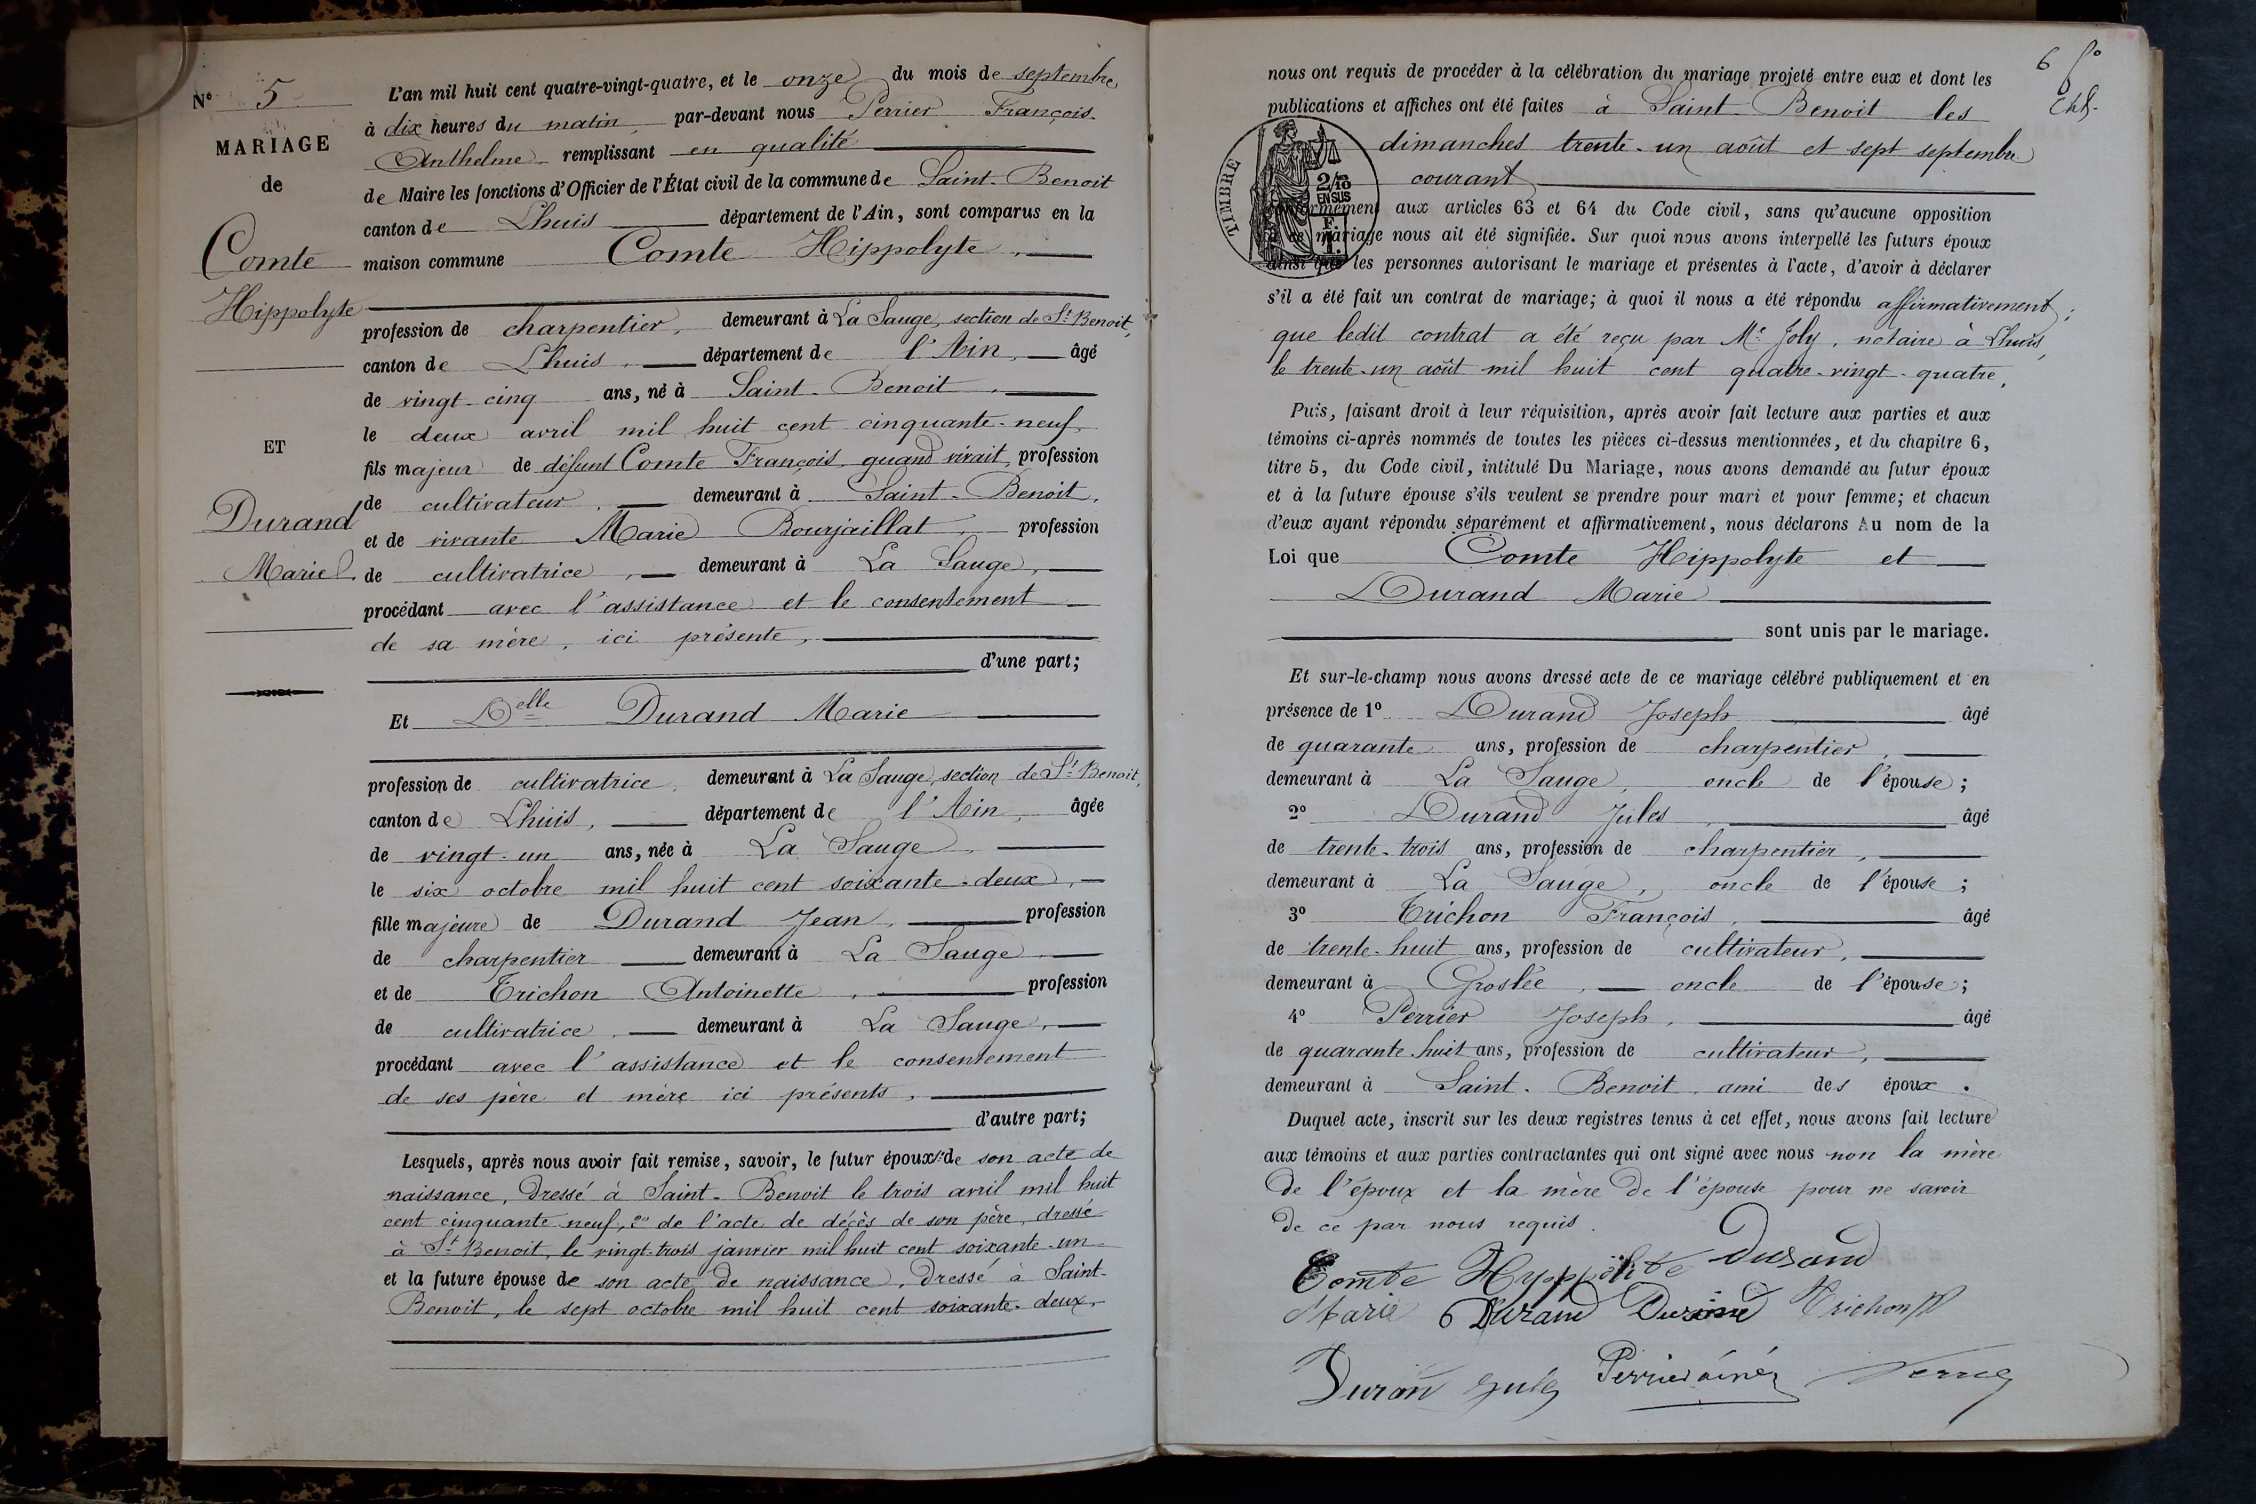 N° 5
MARIAGE
de
Comte
Hippolyte
ET
Durand
Marie
L'an mil huit cent quatre-vingt-quatre, et le onze du mois de septembre
à dix heures du matin, par-devant nous Perrier François
Anthelme remplissant en qualité
de Maire les fonctions d'Officier de l'État civil de la commune de Saint-Benoit
canton de Lhuis département de l'Ain, sont comparus en la
maison commune Comte Hippolyte,
profession de charpentier, demeurant à La Sauge, section de St Benoit,
canton de Lhuis, département de l'Ain, âgé
de vingt-cinq ans, né à Saint-Benoit,
le deux avril mil huit cent cinquante-neuf
fils majeur de défunt Comte François quand vivait, profession
de cultivateur, demeurant à Saint-Benoit,
et de vivante Marie Bourjaillat, profession
de cultivatrice, demeurant à La Sauge,
procédant avec l'assistance et le consentement
de sa mère, ici présente,
d'une part;
Et Delle Durand Marie
profession de cultivatrice, demeurant à La Sauge, section de St Benoit,
canton de Lhuis, département de l'Ain, âgée
de vingt-un ans, née à La Sauge,
le six octobre mil huit cent soixante-deux,
fille majeure de Durand Jean, profession
de charpentier demeurant à La Sauge,
et de Trichon Antoinette, profession
de cultivatrice, demeurant à La Sauge,
procédant avec l'assistance et le consentement
de ses père et mère ici présents,
d'autre part;
Lesquels, après nous avoir fait remise, savoir, le futur époux 1° de son acte de
naissance, dressé à Saint-Benoit le trois avril mil huit
cent cinquante neuf, 2° de l'acte de décès de son père, dressé
à St Benoit, le vingt-trois janvier mil huit cent soixante-un
et la future épouse de son acte de naissance, dressé à Saint-
Benoit, le sept octobre mil huit cent soixante-deux,
6 fo
nous ont requis de procéder à la célébration du mariage projeté entre eux et dont les
publications et affiches ont été faites à Saint-Benoit les
dimanches trente-un août et sept septembre
courant
TIMBRE
2/10
EN SUS
F
1.
conformément aux articles 63 et 64 du Code civil, sans qu'aucune opposition
à ce mariage nous ait été signifiée. Sur quoi nous avons interpellé les futurs époux
ainsi que les personnes autorisant le mariage et présentes à l'acte, d'avoir à déclarer
s'il a été fait un contrat de mariage; à quoi il nous a été répondu affirmativement;
que ledit contrat a été reçu par Me Joly, notaire à Lhuis,
le trente-un août mil huit cent quatre-vingt-quatre,
Puis, faisant droit à leur réquisition, après avoir fait lecture aux parties et aux
témoins ci-après nommés de toutes les pièces ci-dessus mentionnées, et du chapitre 6,
titre 5, du Code civil, intitulé Du Mariage, nous avons demandé au futur époux
et à la future épouse s'ils veulent se prendre pour mari et pour femme; et chacun
d'eux ayant répondu séparément et affirmativement, nous déclarons Au nom de la
Loi que Comte Hippolyte et
Durand Marie
sont unis par le mariage.
Et sur-le-champ nous avons dressé acte de ce mariage célébré publiquement et en
présence de 1° Durand Joseph âgé
de quarante ans, profession de charpentier,
demeurant à La Sauge, oncle de l'épouse;
2° Durand Jules, âgé
de trente-trois ans, profession de charpentier,
demeurant à La Sauge, oncle de l'épouse;
3° Trichon François, âgé
de trente-huit ans, profession de cultivateur,
demeurant à Groslée, oncle de l'épouse;
4° Perrier Joseph, âgé
de quarante-huit ans, profession de cultivateur,
demeurant à Saint-Benoit, ami des époux.
Duquel acte, inscrit sur les deux registres tenus à cet effet, nous avons fait lecture
aux témoins et aux parties contractantes qui ont signé avec nous non la mère
de l'époux et la mère de l'épouse pour ne savoir
de ce par nous requis.
Comte Hyppolite Durand
Marie Durand Durand Trichon
Duran Jules Perrier ainé